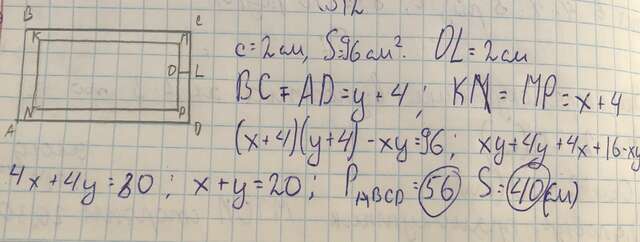 B C
K M
O L
N P
A D
c=2см, S=96см². OL=2см
BC=AD=y+4; KM=MP=x+4
(x+4)(y+4)-xy=96; xy+4y+4x+16-xy
4x+4y=80; x+y=20; P ABCD=56 S=40(см)